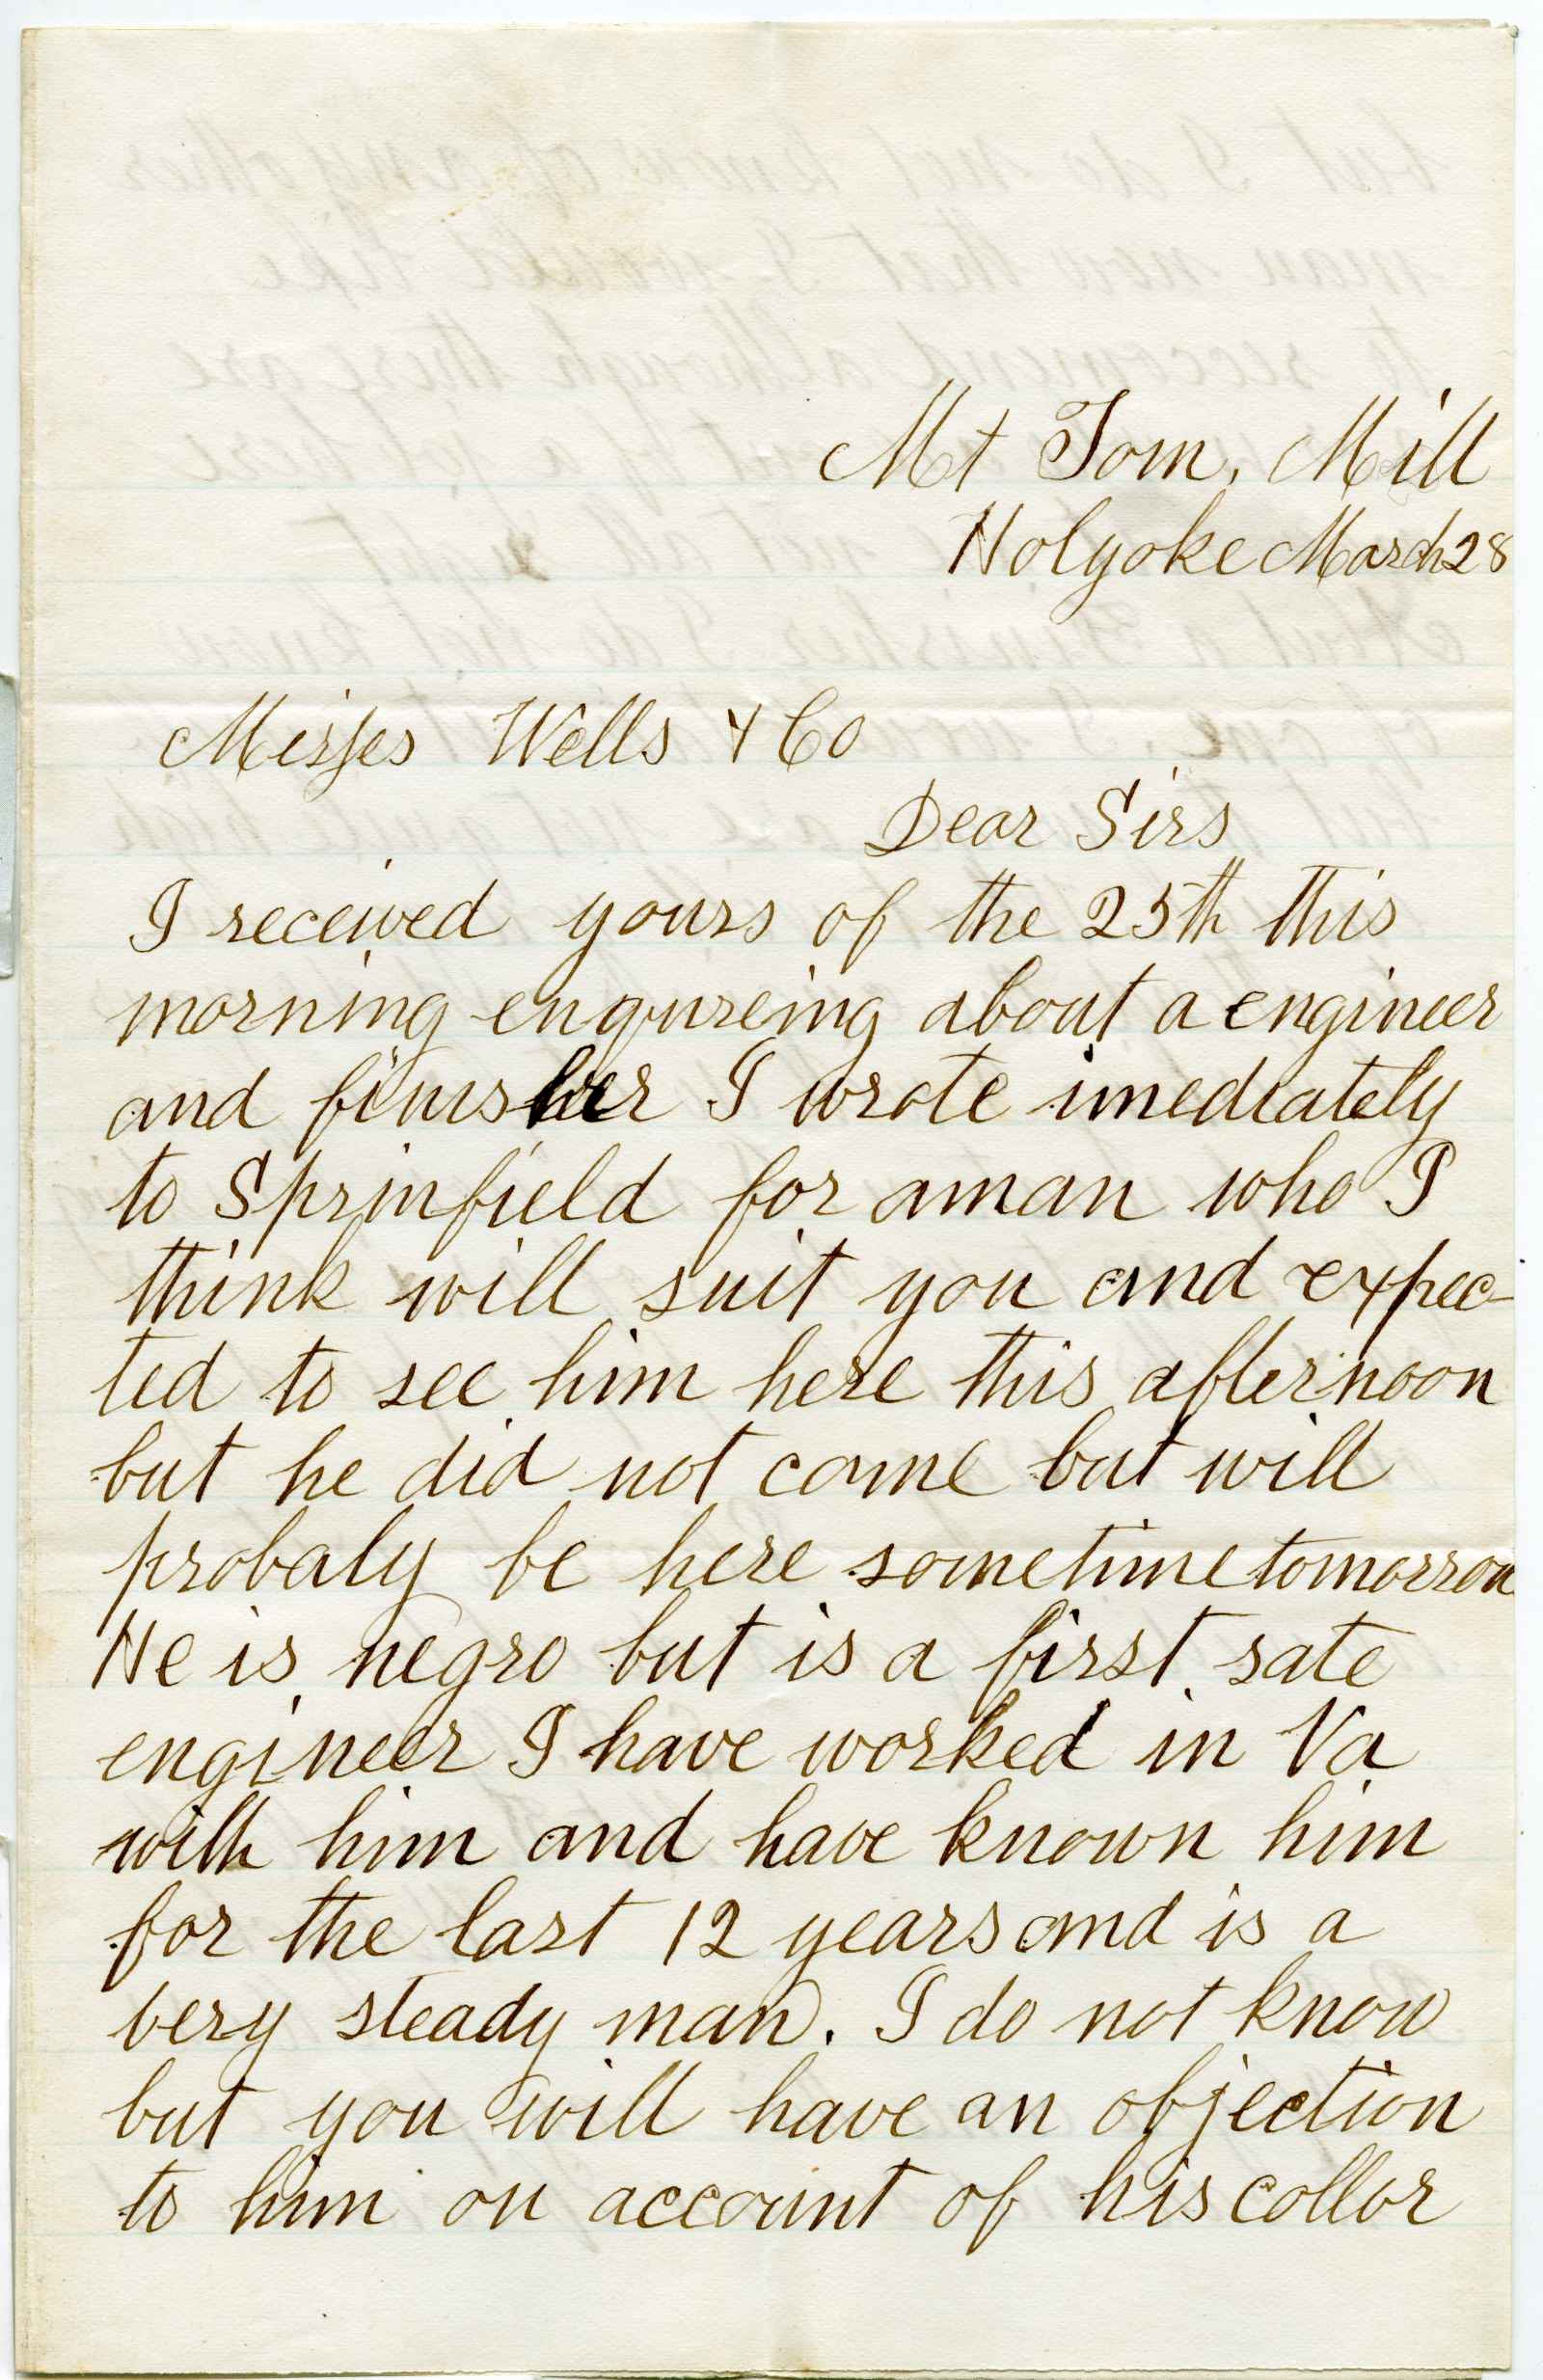 Mt Tom, Mill
Holyoke March 28
Messes Wells & Co
Dear Sirs
I received yours of the 25th this
morning enqureing about a engineer
and finisher I wrote imediately
to Sprinfield for a man who I
think will suit you and expec-
ted to see him here this afternoon
but he did not come but will
probaly be here sometime tomorrow
He is negro but is a first rate
engineer I have worked in Va
with him and have known him
for the last 12 years and is a
very steady man. I do not know
but you will have an objection
to him on account of his collor